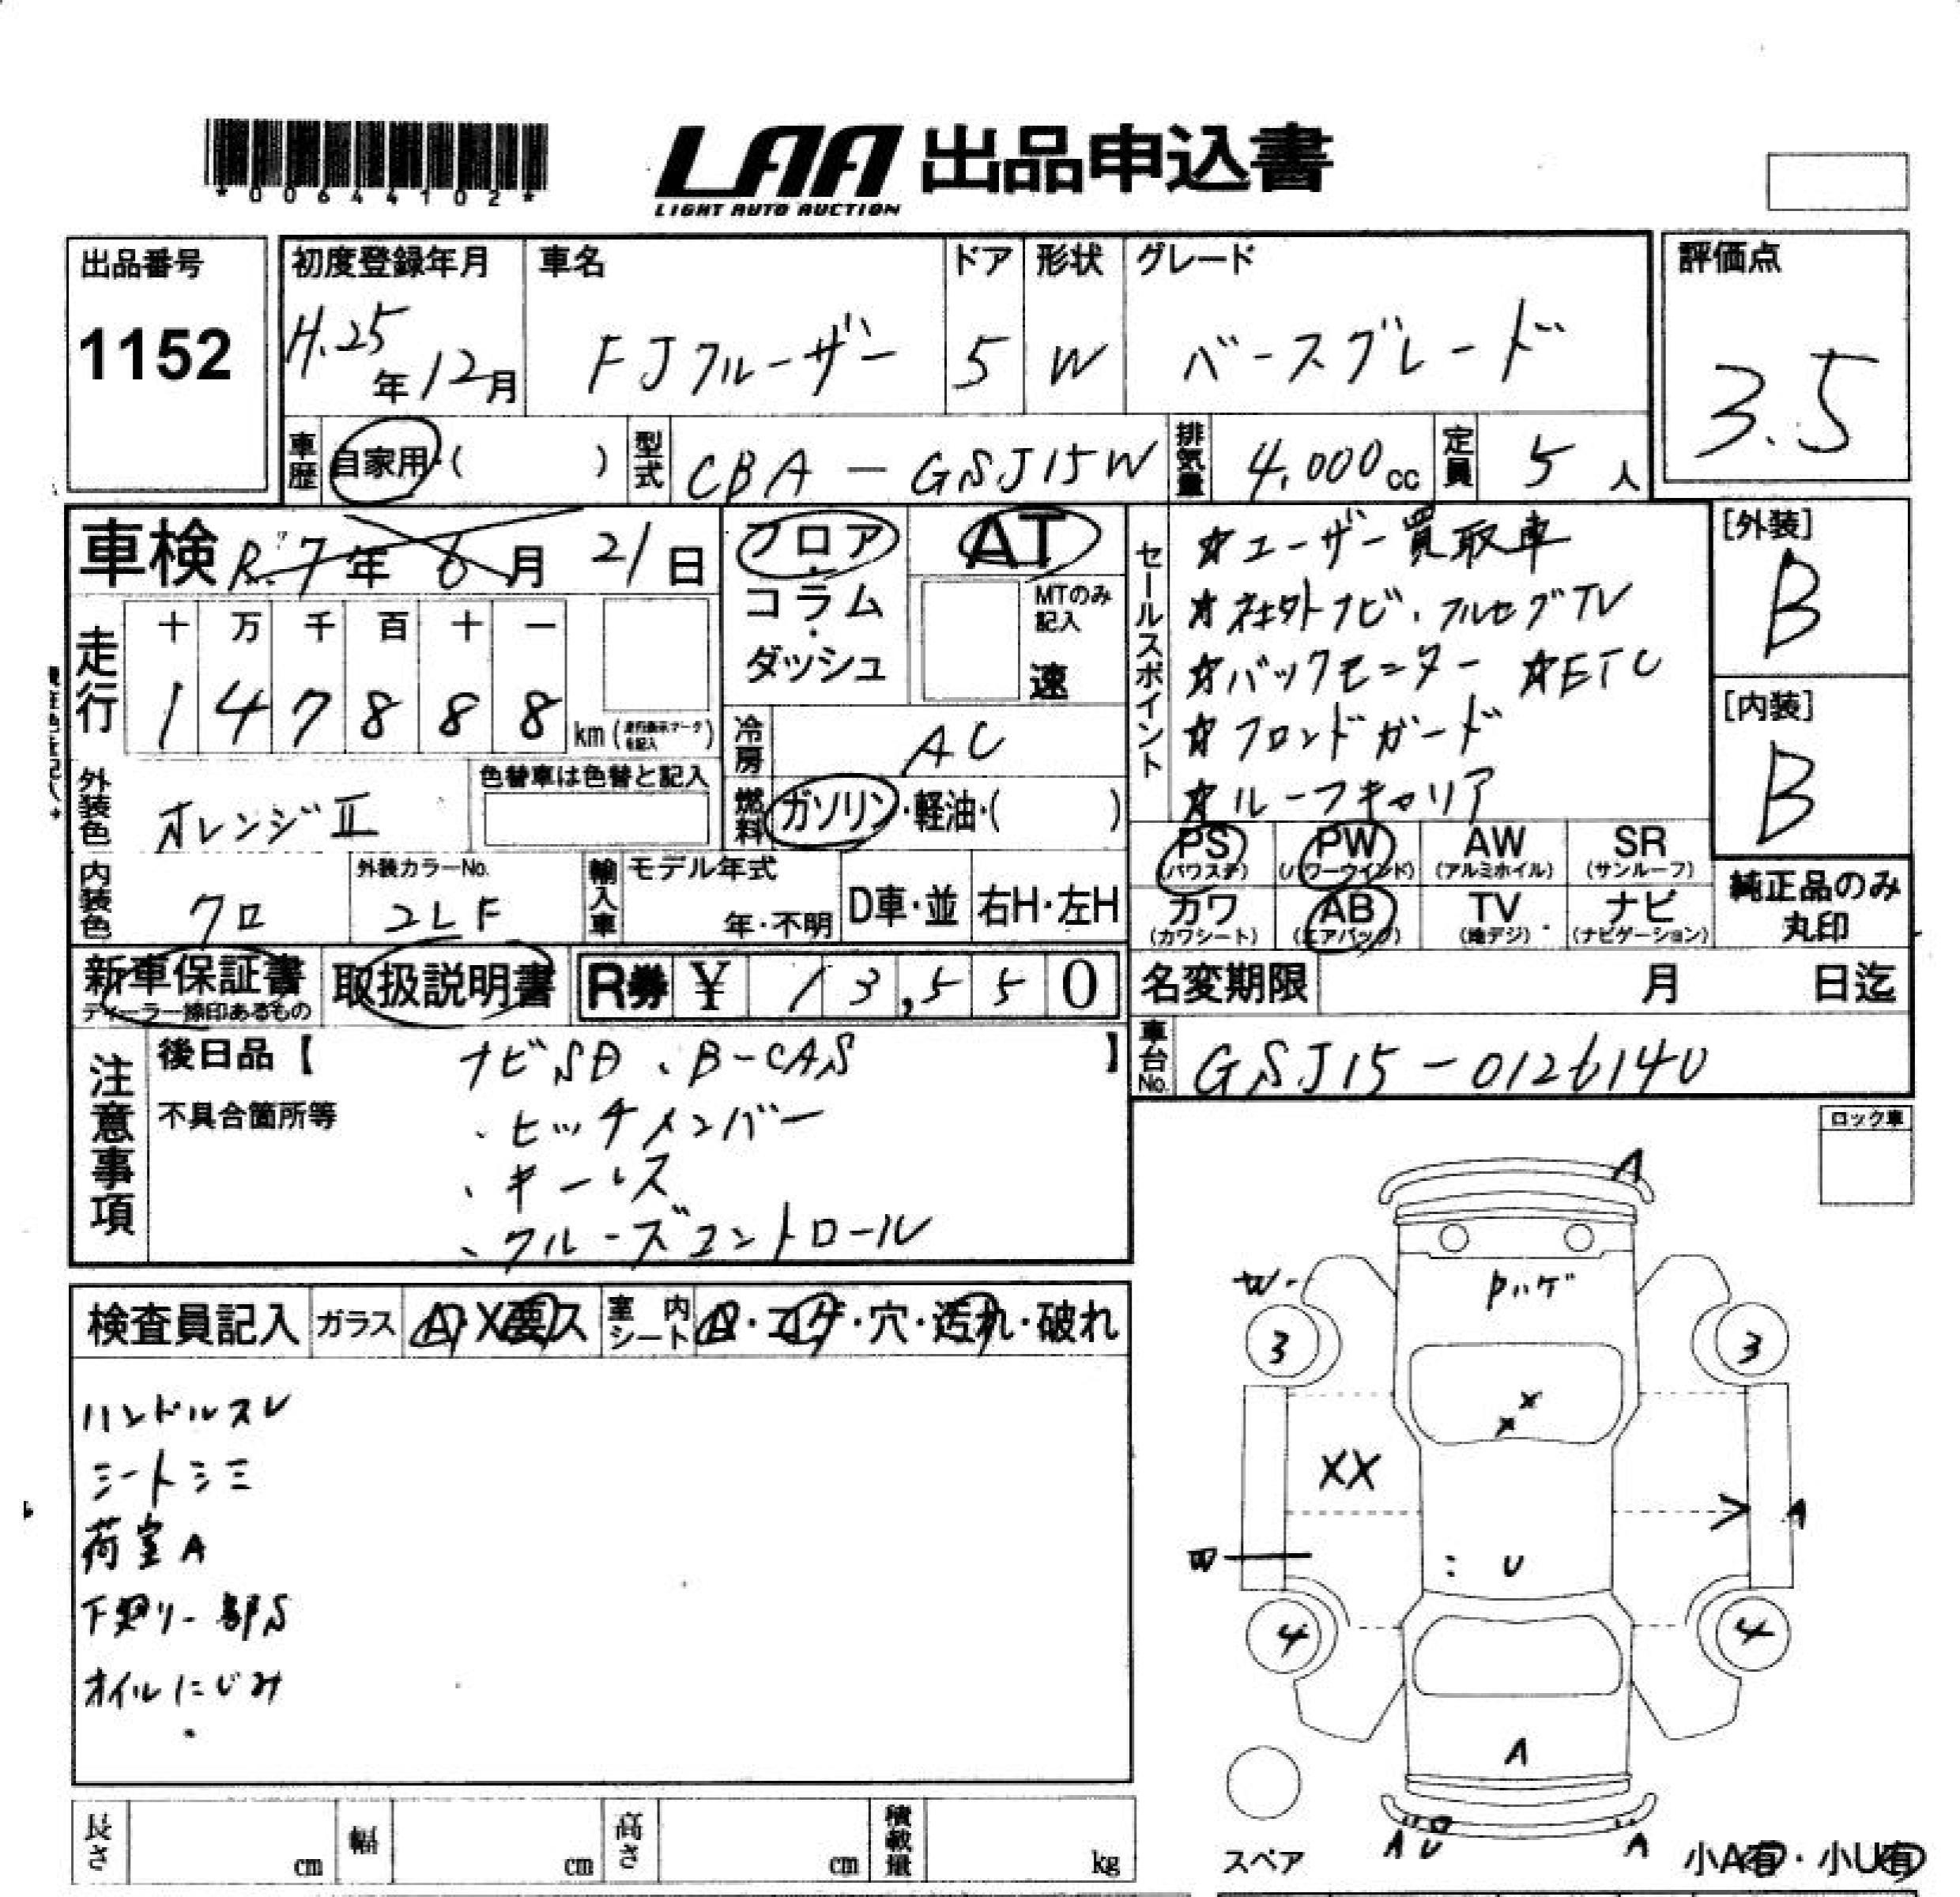 *00644102*
LAA 出品申込書
LIGHT AUTO AUCTION
出品番号
1152
初度登録年月
H.25年12月
車名
FJクルーザー
ドア
5
形状
W
グレード
ベースグレード
評価点
3.5
車歴
自家用・( )
型式
CBA-GSJ15W
排気量
4,000cc
定員
5人
車検 R.7年6月21日
走行
十 万 千 百 十 一
1 4 7 8 8 8 km
フロア・コラム・ダッシュ
AT
MTのみ記入
速
冷房
AC
燃料
ガソリン・軽油・( )
セールスポイント
☆ユーザー買取車
☆社外ナビ・フルセグTV
☆バックモニター ☆ETC
☆フロンドガード
☆ルーフキャリア
[外装]
B
[内装]
B
外装色
オレンジⅡ
色替車は色替と記入
内装色
クロ
外装カラーNo.
2LF
輸入車
モデル年式
年・不明
D車・並
右H・左H
PS (パワステ)
PW (パワーウインド)
AW (アルミホイル)
SR (サンルーフ)
カワ (カワシート)
AB (エアバック)
TV (地デジ)
ナビ (ナビゲーション)
純正品のみ丸印
新車保証書
ディーラー捺印あるもの
取扱説明書
R券 ¥ 13,550
名変期限 月 日迄
車台No.
GSJ15-0126140
注意事項
後日品【 ナビSD、B-CAS 】
不具合箇所等
、ヒッチメンバー
、キーレス
、クルーズコントロール
ロック車
検査員記入
ガラス
A・X要ス
室内シート
A・コゲ・穴・汚れ・破れ
ハンドルスレ
シートシミ
荷室A
下廻り一部S
オイルにじみ
A
W
Pハゲ
3
3
X
X
XX
A
U
4
4
A
A U
A
スペア
小A有・小U有
長さ cm
幅 cm
高さ cm
積載量 kg